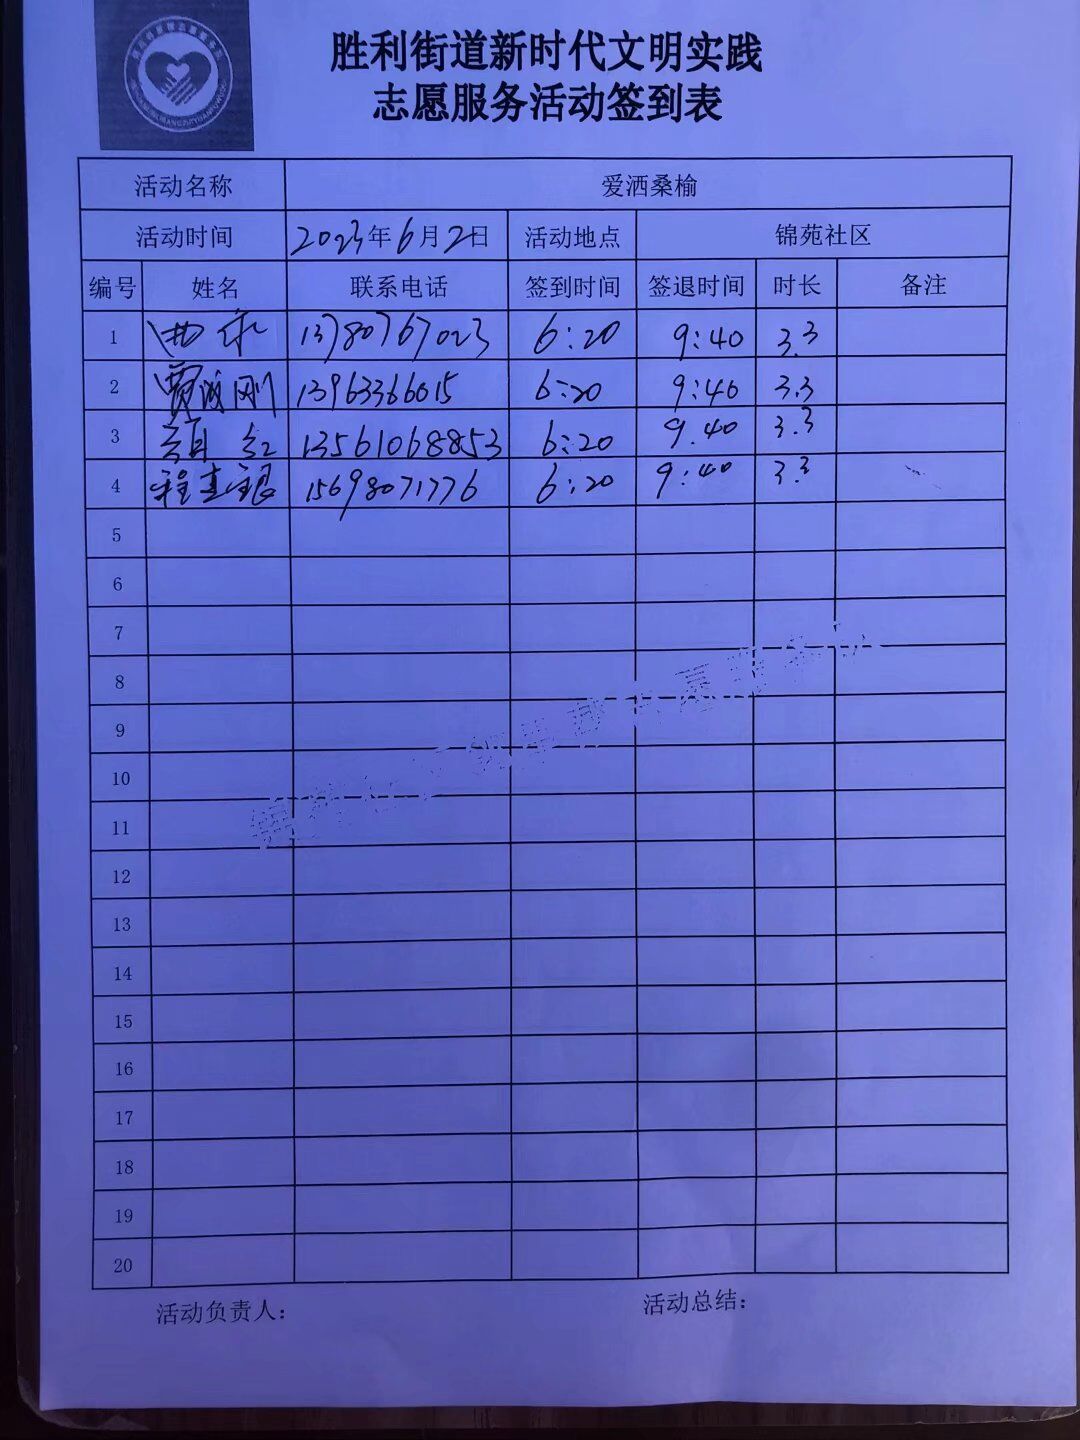 胜利街道新时代文明实践
志愿服务活动签到表
活动名称 爱洒桑榆
活动时间 2023年6月2日 活动地点 锦苑社区
编号 姓名 联系电话 签到时间 签退时间 时长 备注
1 13780767023 6:20 9:40 3.3
2 贾成刚 13963366015 6:20 9:40 3.3
3 红 13561068853 6:20 9.40 3.3
4 程圭银 15698071776 6:20 9:40 3.3
5
6
7
8
9
10
11
12
13
14
15
16
17
18
19
20
活动负责人： 活动总结：